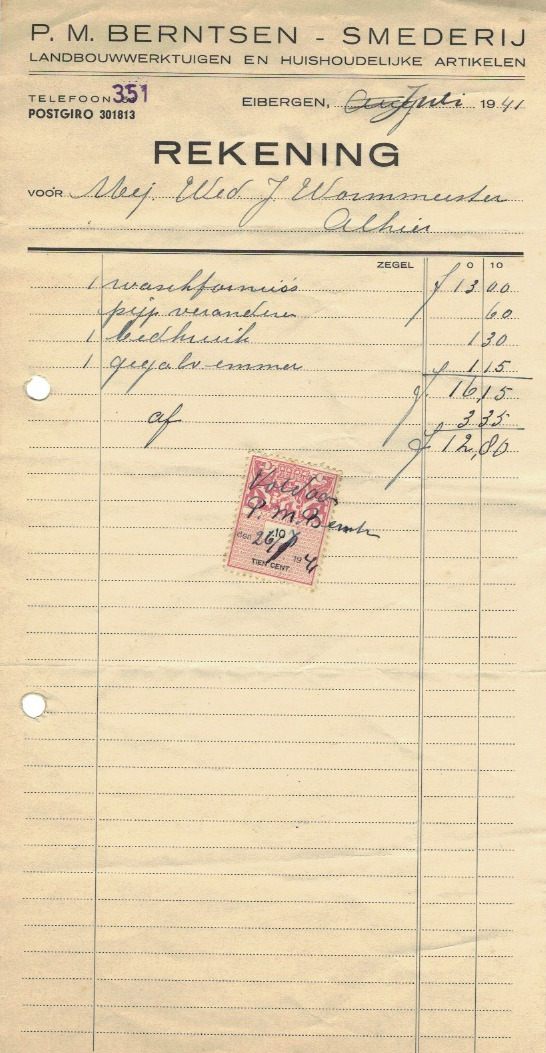 P. M. BERNTSEN - SMEDERIJ
LANDBOUWWERKTUIGEN EN HUISHOUDELIJKE ARTIKELEN
TELEFOON 351
POSTGIRO 301813
EIBERGEN, Juli 1941
REKENING
VOOR Mej. Wed. J Wormmeester
Alhier
ZEGEL 0 10
1 waschfornuis f 13 00
pijp veranderen 60
1 bedkruik 1 30
1 gegalv emmer 1 15
f. 16,15
af 3 35
f 12,80
Voldaan
P. M. Bernts
10
den 26/ 1941
TIEN CENT